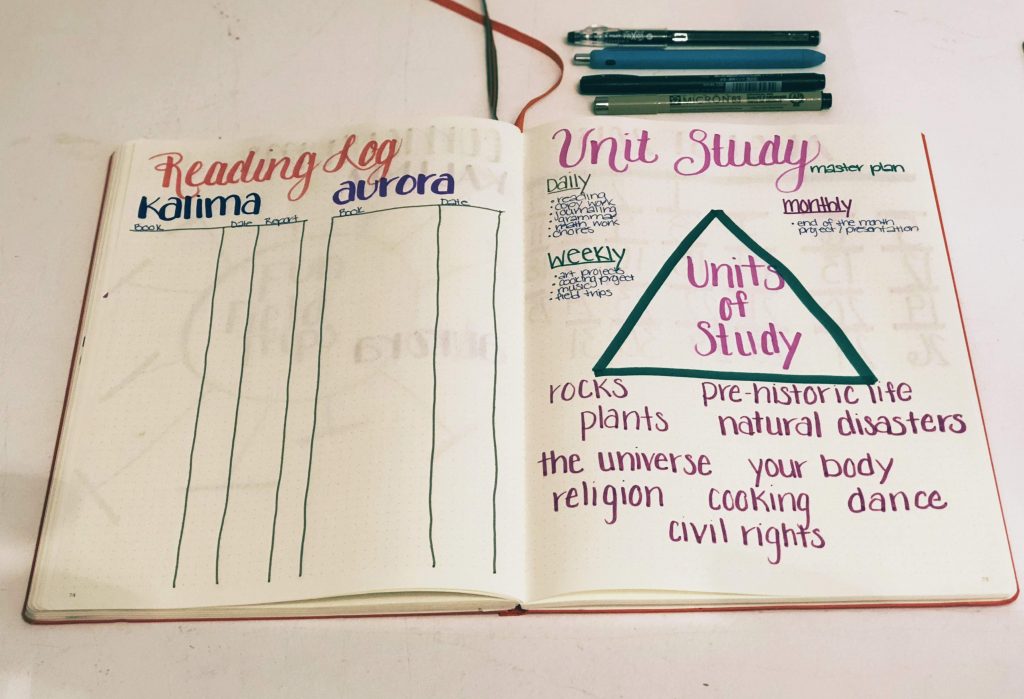 Reading Log
Karima
Book Date Report
aurora
Book Date
Unit Study
master plan
Daily
• reading
• copy work
• journaling
• grammar
• math work
• chores
Weekly
• art projects
• cooking project
• music
• field trips
monthly
• end of the month
project / presentation
Units
of
Study
rocks pre-historic life
plants natural disasters
the universe your body
religion cooking dance
civil rights
MICRON